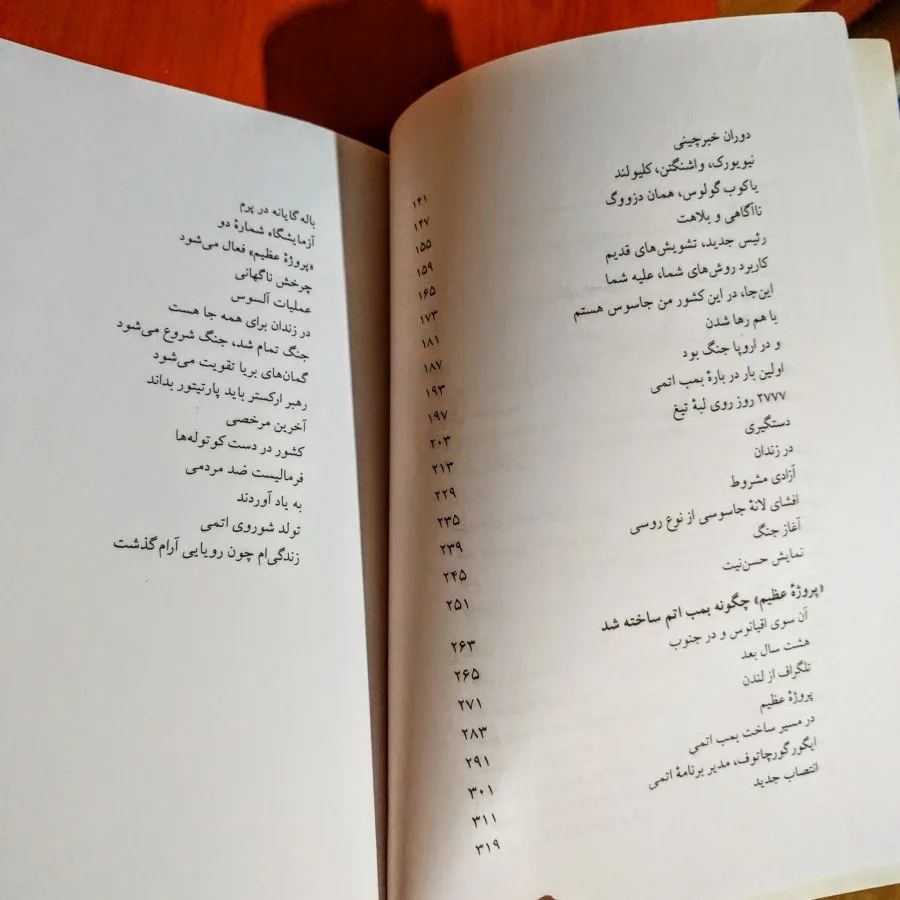 دوران خبرچینی ۱۴۱
نیویورک، واشنگتن، کلیولند ۱۴۷
یاکوب گولوس، همان دزووگ ۱۵۵
ناآگاهی و بلاهت ۱۵۹
رئیس جدید، تشویش‌های قدیم ۱۶۵
کاربرد روش‌های شما، علیه شما ۱۷۳
این‌جا، در این کشور من جاسوس هستم ۱۸۱
با هم رها شدن ۱۸۷
و در اروپا جنگ بود ۱۹۳
اولین بار در بارهٔ بمب اتمی ۱۹۷
۲۷۷۷ روز روی لبهٔ تیغ ۲۰۳
دستگیری ۲۱۳
در زندان ۲۲۹
آزادی مشروط ۲۳۵
افشای لانهٔ جاسوسی از نوع روسی ۲۳۹
آغاز جنگ ۲۴۵
نمایش حسن‌نیت ۲۵۱
«پروژهٔ عظیم» چگونه بمب اتم ساخته شد ۲۶۳
آن سوی اقیانوس و در جنوب ۲۶۵
هشت سال بعد ۲۷۱
تلگراف از لندن ۲۸۳
پروژهٔ عظیم ۲۹۱
در مسیر ساخت بمب اتمی ۳۰۱
ایگور گورچاتوف، مدیر برنامهٔ اتمی ۳۱۱
انتصاب جدید ۳۱۹
باله گایانه در پرم
آزمایشگاه شمارهٔ دو
«پروژهٔ عظیم» فعال می‌شود
چرخش ناگهانی
عملیات آلسوس
در زندان برای همه جا هست
جنگ تمام شد، جنگ شروع می‌شود
گمان‌های بریا تقویت می‌شود
رهبر ارکستر باید پارتیتور بداند
آخرین مرخصی
کشور در دست کوتوله‌ها
فرمالیست ضد مردمی
به یاد آوردند
تولد شوروی اتمی
زندگی‌ام چون رویایی آرام گذشت